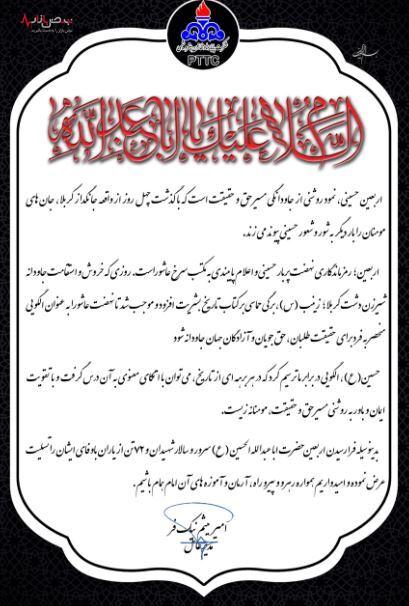 نبض بازار
PTTC
السلام علیک یا اباعبدالله
اربعین حسینی، نمود روشنی از جاودانگی مسیر حق و حقیقت است که با گذشت چهل روز از واقعه جانگداز کربلا، جان‌های
مومنان را بار دیگر به شور و شعور حسینی پیوند می زند.
اربعین؛ رمز ماندگاری نهضت پربار حسینی و اعلام پایبندی به مکتب سرخ عاشوراست. روزی که خروش و استقامت جاودانه
شیرزن دشت کربلا؛ زینب (س)، برگی حماسی بر کتاب تاریخ بشریت افزود و موجب شد تا نهضت عاشورا به عنوان الگویی
منحصر به فرد برای حقیقت طلبان، حق جویان و آزادگان جهان جاودانه شود
حسین(ع)، الگویی در برابر ما ترسیم کرد که در هر برهه ای از تاریخ، می توان با اتکای معنوی به آن درس گرفت و با تقویت
ایمان و باور به روشنی مسیر حق و حقیقت، مومنانه زیست.
بدینوسیله فرا رسیدن اربعین حضرت اباعبدالله الحسین (ع) سرور و سالار شهیدان و ۷۲ تن از یاران باوفای ایشان را تسلیت
عرض نموده و امیدواریم همواره رهرو و پیرو راه، آرمان و آموزه های آن امام همام باشیم.
امیر میثم نیک فر
مدیرعامل